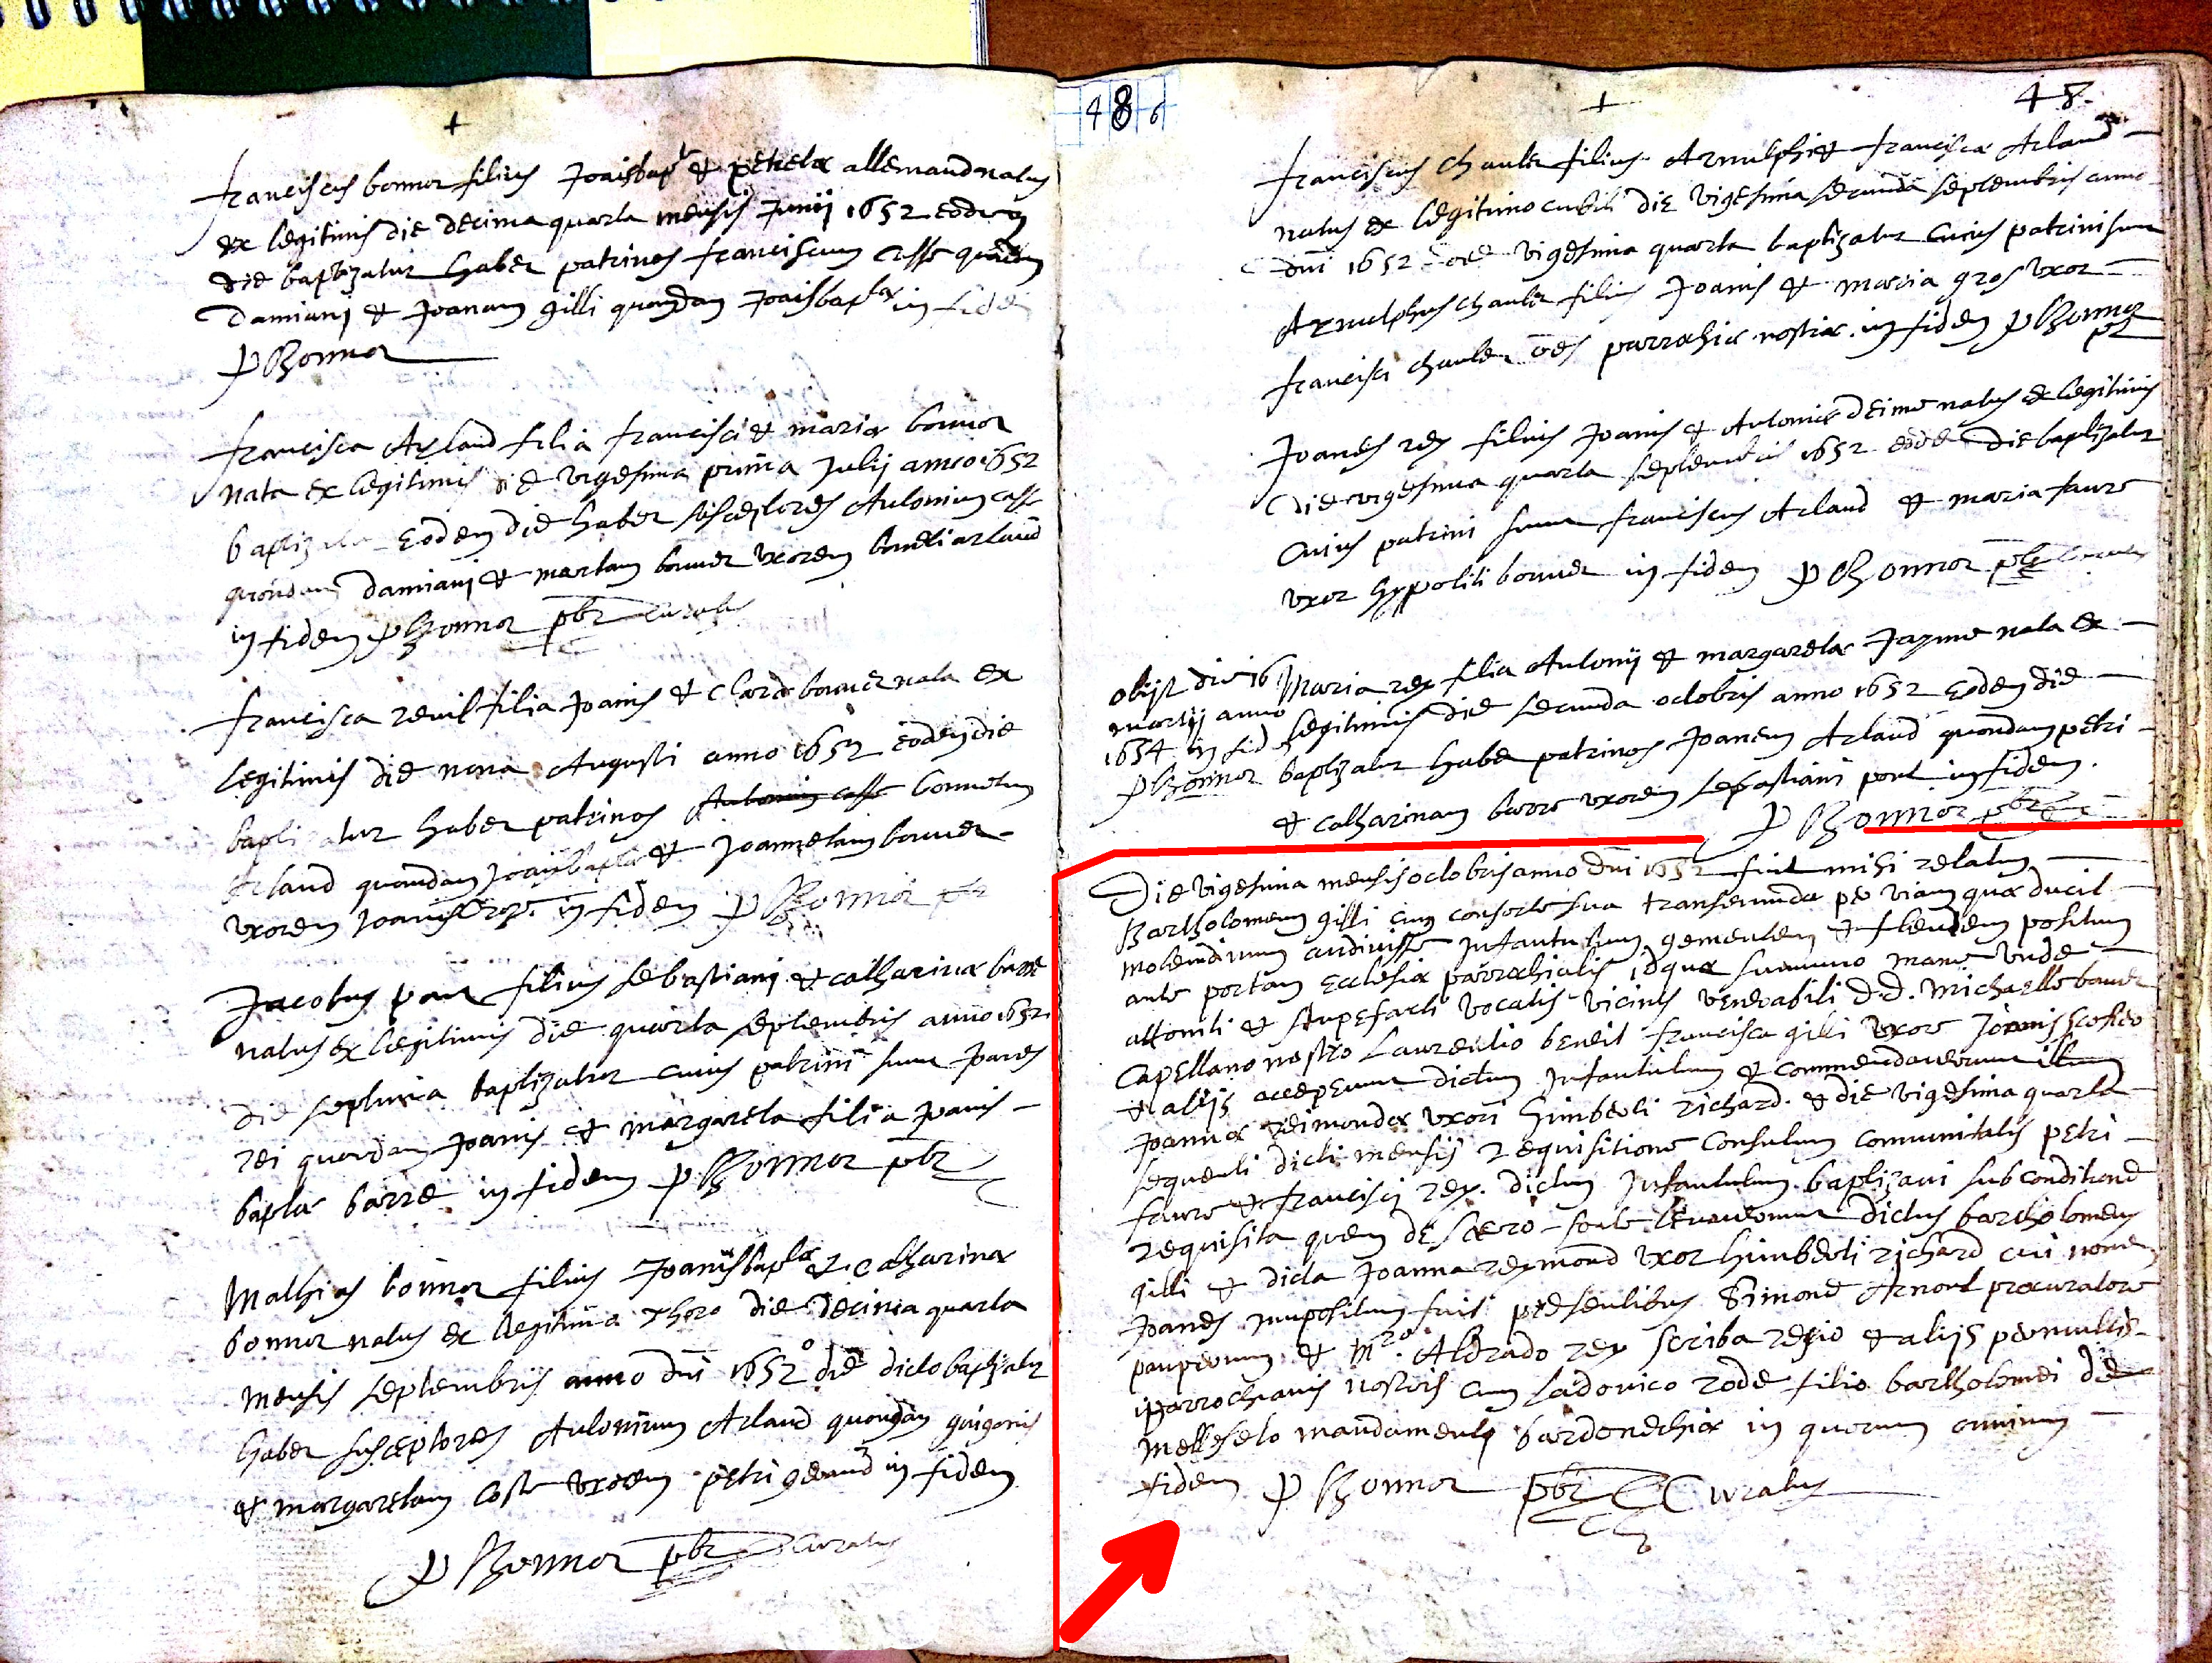 +
franciscus bonnor filius Joaisbapt & petrelæ allemand natus
ex legitimis die decima quarta mensis Junij 1652 eodem
die baptizatur habet patrinos franciscum Casse quondam
Damiani & Joanam gilli quondam Joaisbaptæ in fide
P Bonnor
francisca Arlaud filia francisci & mariæ bonnor
nata ex legitimis die vigesima prima Julij anno 1652
baptizatur Eodem die habet susceptores Antonium casse
quondam damiani & martam bonnet uxorem arlaud
in fidem P Bonnor pbr curatus
francisca revil filia Joanis & Claræ bonnet nata ex
legitimis die nona Augusti anno 1652 eodem die
baptizatur habet patrinos Antonium casse bonnetum
Arlaud quondam Joaisbaptæ & Joannetam bonnet
uxorem Joanis rey. in fidem P Bonnor pbr
Jacobus pont filius sebastiani & catharinæ barre
natus ex legitimis die quarta septembris anno 1652.
die septima baptizatur cuius patrini sunt Joanes
rei quondam Joanis & margareta filia Joanis
baptæ barre in fidem P Bonnor pbr
Mathias bonnor filius Joanisbaptæ & Catharinæ
bonnor natus ex legitimo thoro die decima quarta
mensis septembris anno dni 1652 die dicto baptizatur
habet susceptores Antonium Arlaud quondam guigonis
& margaretam Coste uxorem petri geraud in fidem
P Bonnor pbr Curatus
486
+
48.
franciscus chaulet filius Arnulphi & franciscæ Arlaud
natus ex legitimo cubili die vigesima secunda septembris anno
dni 1652 vigesima quarta baptizatur Cuius patrini sunt
Arnulphus chaulet filius Joanis & maria gros uxor
francisci chaulet oēs parrochiæ nostræ. in fidem P Bonnor
pbr
Joanes rey filius Joanis & Antoniæ Deime natus ex legitimis
die vigesima quarta septembris 1652 eode die baptizatur
Cuius patrini sunt franciscus Arlaud & maria faure
uxor hyppoliti bonnet in fidem P Bonnor pbr
obijt die 16
martij anno
1654 in fid
P Bonnor
Maria rey filia Antonij & margaretæ Jayme nata ex
legitimis die secunda octobris anno 1652 Eodem die
baptizatur habet patrinos Joanem Arlaud quondam petri
& catharinam barre uxorem sebastiani pont in fidem.
P Bonnor pbr
Die vigesima mensis octobris anno dni 1652 fuit mihi relatum
Bartholomeum gilli cum consorte sua transeundo per viam quæ ducit
molendinum audivisse Infantulum gementem & flentem positum
ante portam Ecclesiæ parrochialis idque summo mane unde
attoniti & stupefacti vocatis vicinis venerabili d.d. Michaelle bonnet
Capellano nostro Laurentio beneit francisca gilli uxore Joannis
& alijs acceperunt dictum Infantulum & commendaverunt illum
Joannæ reimondæ uxori himberti richard. & die vigesima quarta
sequenti dicti mensis requisitione Consulum comunitatis petri
faure & francisci rey. dictum Infantulum baptizavi sub conditione
requisita quem de sacro fonte levaverunt dictus bartholomeus
gilli & dicta Joanna reymond uxor himberti richard cui nomen
Joanes impositum fuit presentibus Simone Arnoul procuratore
pauperum & Mro. Aldrado rey scriba regio & alijs permultis
parrochianis nostris cum Ladovico rode filio bartholomei de
melleseto mandamenti bardonechiæ in quorum omnium
fidem P Bonnor pbr Curatus